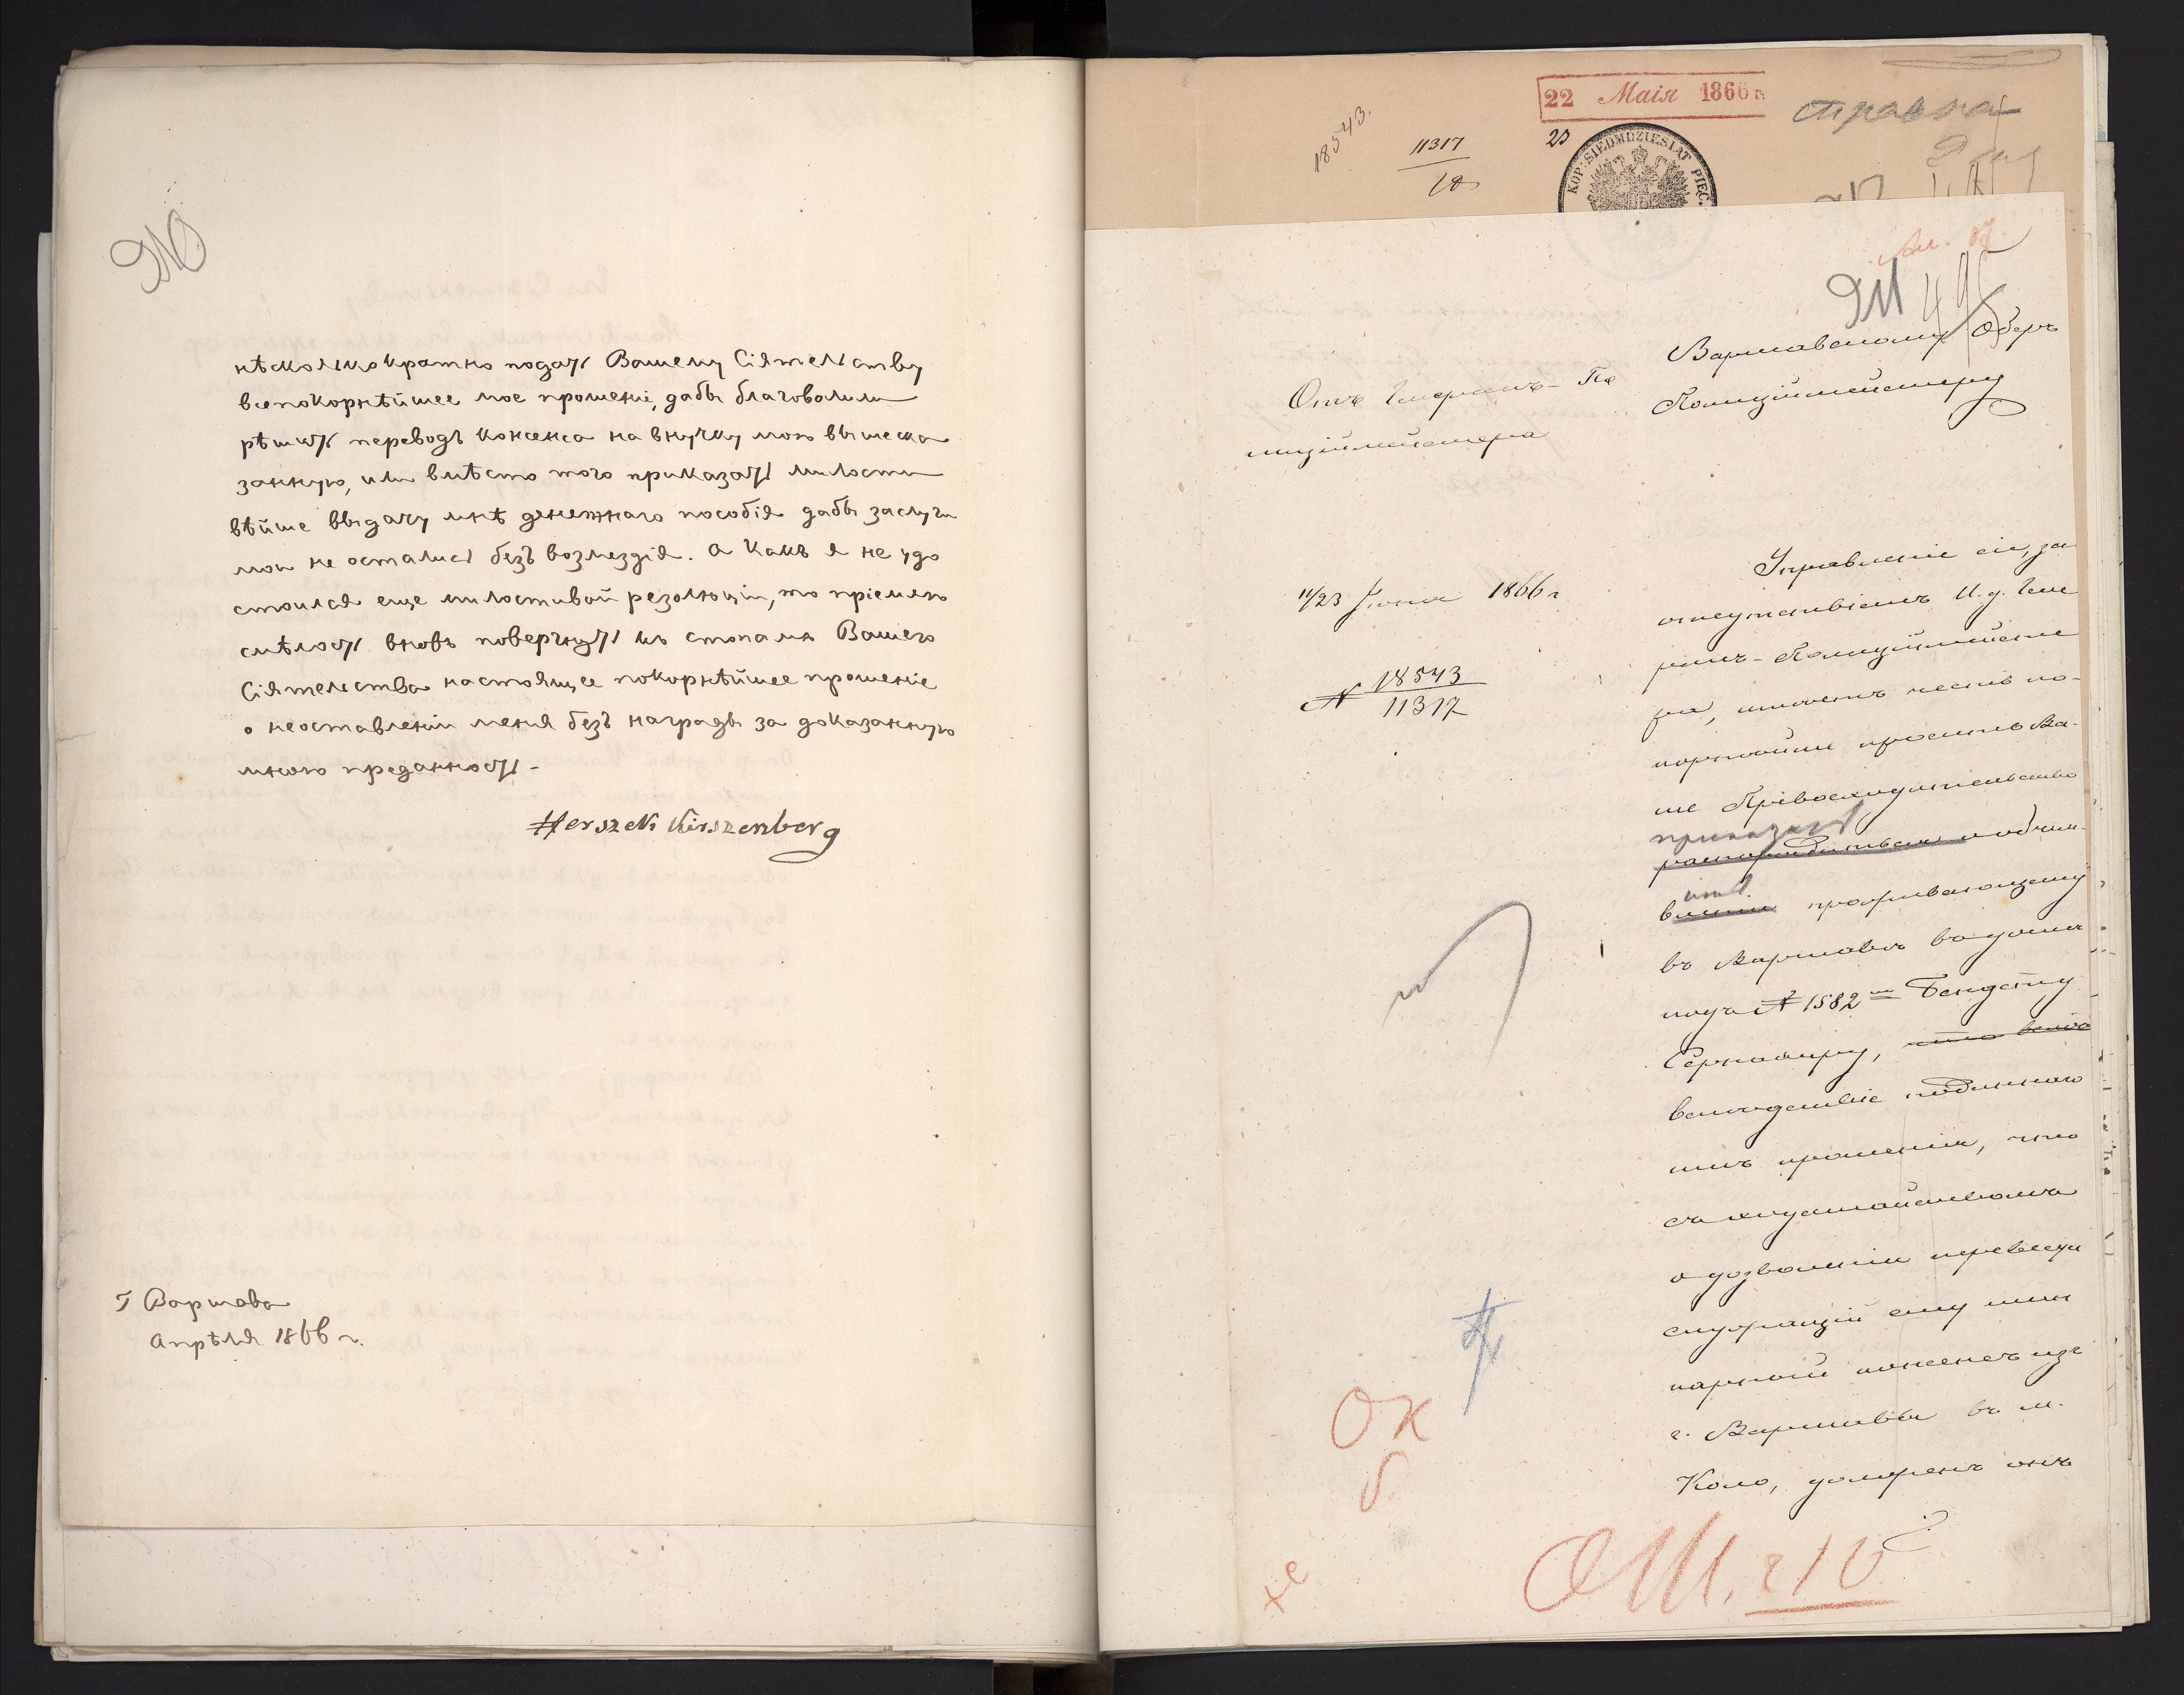 нѣсколькократно подать Вашему Сіятельству
всепокорнѣйшее мое прошеніе, дабы благоволили
рѣшить переводъ консенса на внучку мою вышеска
занную, или вмѣсто того приказать милости
вѣйше выдачу мнѣ денежнаго пособія дабы заслуги
мои не остались безъ возмездія. А какъ я не удо
стоился еще милостивой резолюціи, то пріемлю
смѣлость вновь повергнуть къ стопамъ Вашего
Сіятельства настоящее покорнѣйшее прошеніе
о неоставленіи меня безъ награды за доказанную
мною преданность.
Herszek Kirszenberg
Г Варшава
Апрѣля 1866 г.
22 Маія 1866
18543.
11317
KOP: SIEDMDZIESIĄT PIĘĆ.
справка
Варшавскому Оберъ
Полицiймейстеру
Отъ Генералъ-По
лицiймейстера
11/23 Іюня 1866 г
№ 18543
11317
Управленіе сіе, за
отсутствіемъ И. д. Гене
ралъ-Полиціймейсте
ра, имѣетъ честь по-
корнѣйше просить Ва-
ше Превосходительство
приказать
распорядиться объ
проживающему
въ Варшавѣ въ домѣ
подъ № 1582
вслѣдствіе поданнаго
имъ прошенія, что
съ ходатайствомъ
о дозволеніи перевести
служащій ему шин
карный консенсъ изъ
г. Варшавы въ м.
Коло, долженъ онъ
ОК